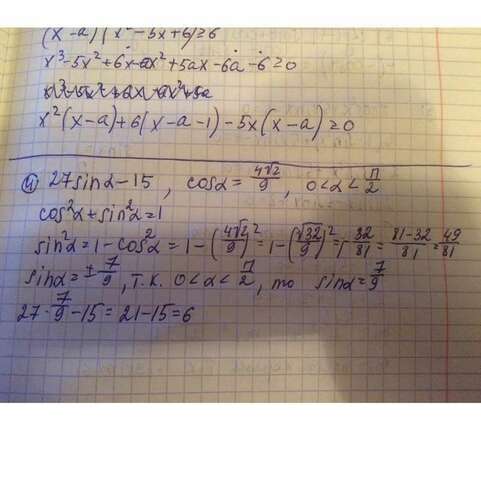 (x-a)(x²-5x+6)≥6
x³-5x²+6x-ax²+5ax-6a-6≥0
x³-5x²+6x-ax²+5a
x²(x-a)+6(x-a-1)-5x(x-a)≥0
④ 27sinα-15, cosα=4√2/9, 0<α<π/2
cos²α+sin²α=1
sin²α=1-cos²α=1-(4√2/9)²=1-(√32/9)²=1-32/81=81-32/81=49/81
sinα=±7/9, т.к. 0<α<π/2, то sinα=7/9
27·7/9-15=21-15=6